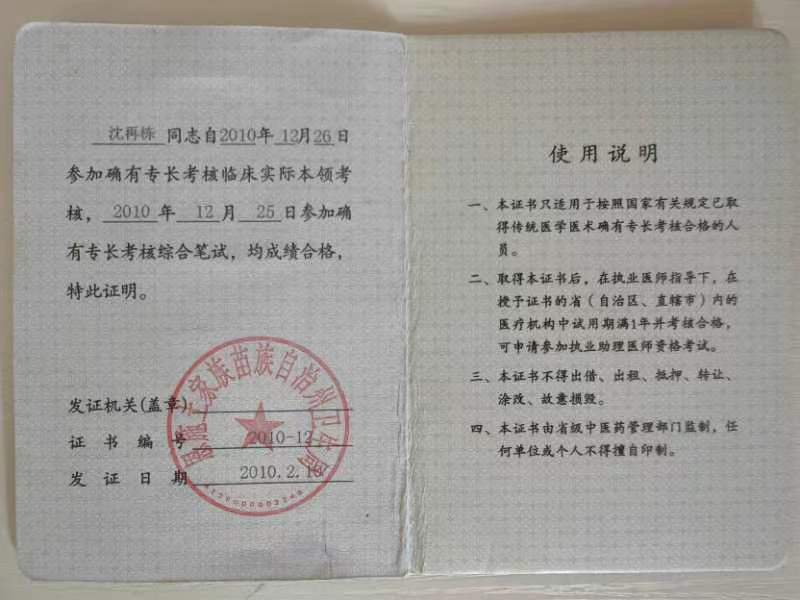 沈再栋 同志自2010年 12月26日
参加确有专长考核临床实际本领考
核， 2010 年 12 月 25 日参加确
有专长考核综合笔试，均成绩合格，
特此证明。
恩施土家族苗族自治州卫生局
发证机关(盖章)
证书编号 2010-12
发证日期 2010.2.10
使用说明
一、本证书只适用于按照国家有关规定已取
得传统医学医术确有专长考核合格的人
员。
二、取得本证书后，在执业医师指导下，在
授予证书的省（自治区、直辖市）内的
医疗机构中试用期满1年并考核合格，
可申请参加执业助理医师资格考试。
三、本证书不得出借、出租、抵押、转让、
涂改、故意损毁。
四、本证书由省级中医药管理部门监制，任
何单位或个人不得擅自印制。